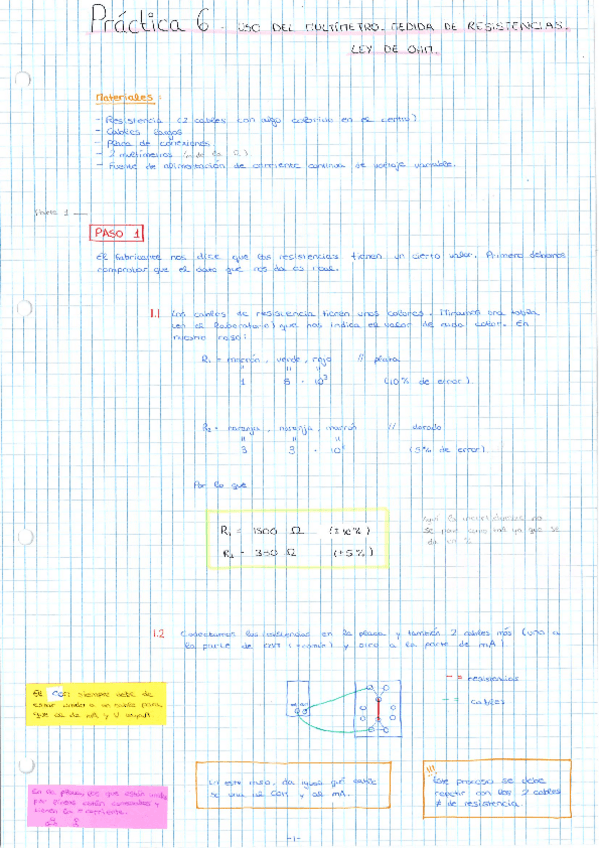 Práctica 6 - USO DEL MULTÍMETRO. MEDIDA DE RESISTENCIAS.
LEY DE OHM.
Materiales:
- Resistencia (2 cables con algo colorido en el centro)
- Cables largos
- Placa de conexiones
- 2 multímetros
- Fuente de alimentación de corriente continua de voltaje variable.
PASO 1
El fabricante nos dice que las resistencias tienen un cierto valor. Primero debemos
comprobar que el dato que nos da es real.
1.1 Los cables de resistencia tienen unos colores. Miramos una tabla
(en el laboratorio) que nos indica el valor de cada color. En
nuestro caso:
R₁ = marrón, verde, rojo // plata
" " "
1 5 · 10² (10% de error).
R₂ = naranja, naranja, marrón // dorado
" " "
3 3 · 10¹ (5% de error)
Por lo que
R₁ = 1500 Ω (±10%)
R₂ = 330 Ω (±5%)
se da en %
1.2 Conectamos las resistencias en la placa y también 2 cables más (uno a
la parte de COM (común) y otro a la parte de mA)
- = resistencias
- = cables
El COM siempre debe de
estar unido a un cable para
que dé de mA y V
En la placa, los que están unidos
por líneas están conectados y
tienen la = corriente.
En este caso, da igual qué cable
se una al COM y al mA.
!!!
Este proceso se debe
repetir con los 2 cables
≠ de resistencia.
-1-